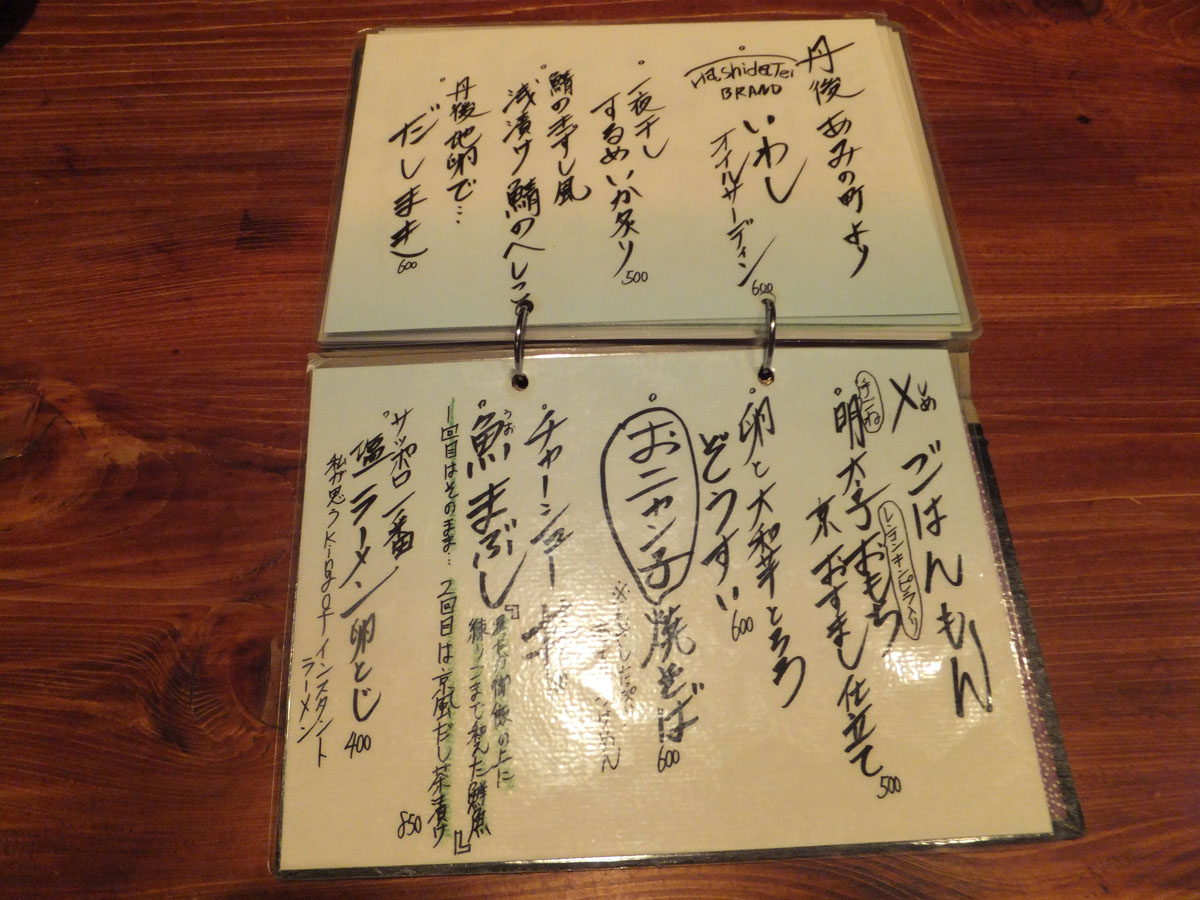 丹後あみの町より
HashidaTei
BRAND
いわし
オイルサーディン
600
一夜干し
するめいか炙り
500
鯖のなれずし風
浅漬け鯖のへしこ
丹後地卵で…
だしまき
600
〆しめ
ごはんもん
明太子おもち
レンコンキンピラ入り
京おすまし仕立て
500
卵と大和芋とろろ
ぞうすい
600
おニャン子焼そば
600
チャーシュー丼
うお
魚まぶし
『黒七味御飯の上に
練りごまで和えた鮮魚』
1回目はそのまま… 2回目は京風だし茶漬け
850
サッポロ一番
塩ラーメン卵とじ
400
私が思うKing of インスタント
ラーメン